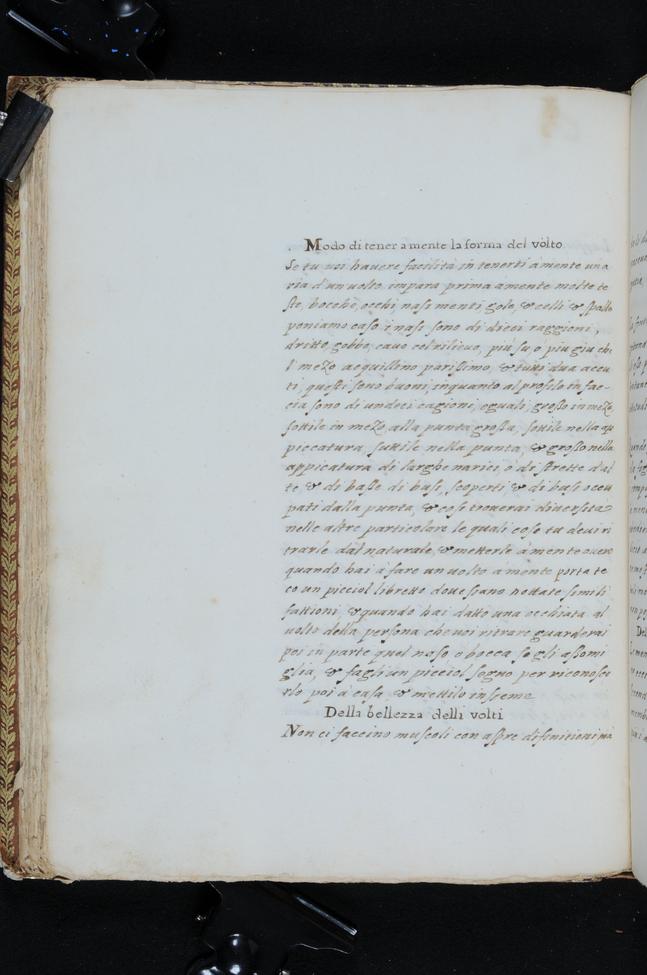 Modo di tener a mente la forma del volto
Se tu voi havere facilità in tenerti à mente una
ria d'un volto impara prima a mente molte te
ste, bocche, occhi, nasi menti gole, & colli & spalle
poniamo caso i nasi sono di dieci raggioni,
dritto, gobbo, cavo col rilievo, più su o piu giu che
l mezo aquillino parissimo, & tutto dua accu
ti questi sono buoni, inquanto al profilo in fac-
cia sono di undeci cagioni, eguali, grosso in mezo,
sottile in mezo, alla punta grossa, sottile nella ap
piccatura, suttile nella punta, & grosso nella
appicatura di larghe narici, o di strette d'al
te & di basse di busi, scoperti & di busi ocu
pati dalla punta & cosi troverai diversità
nelle altre particolare le quali cose tu devi ri
trarle dal naturale, & metterle à mente overo
quando hai à fare un volto a mente porta te
co un picciol libretto dove siano nottate simili
fattioni, & quando hai datto una occhiata al
volto della persona che voi ritrare guarderai
poi in parte quel naso o bocca se gli assomi
glia, & fagli un picciol segno per riconosce
rlo poi à casa & mettilo insieme
Della bellezza delli volti
Non ci faccino muscoli con aspre definitioni ma